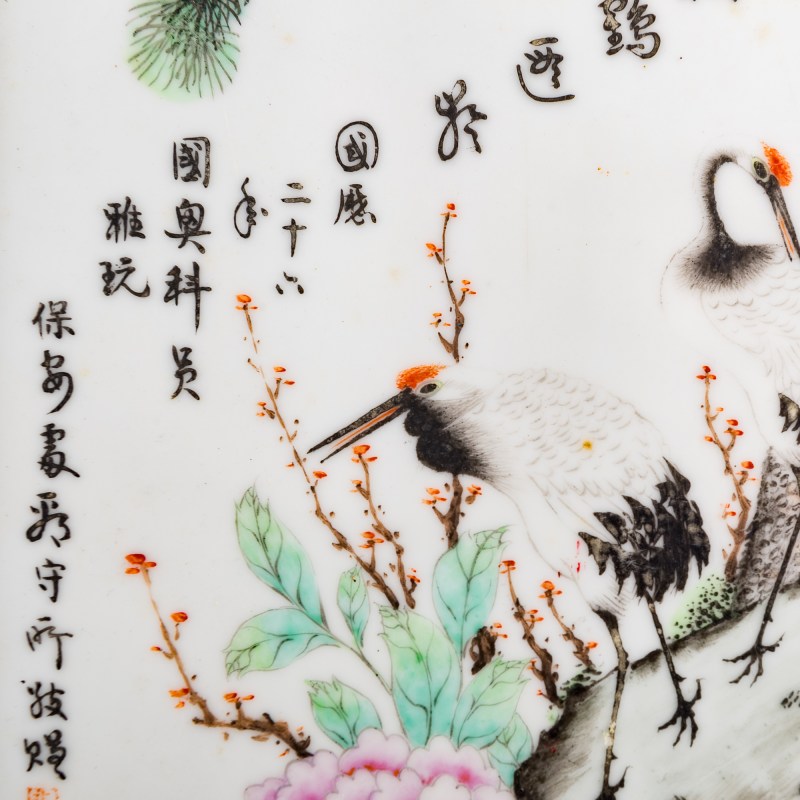 鶴遐齡
國曆
二十六
年
國奧科员
雅玩
保安處看守所敬贈